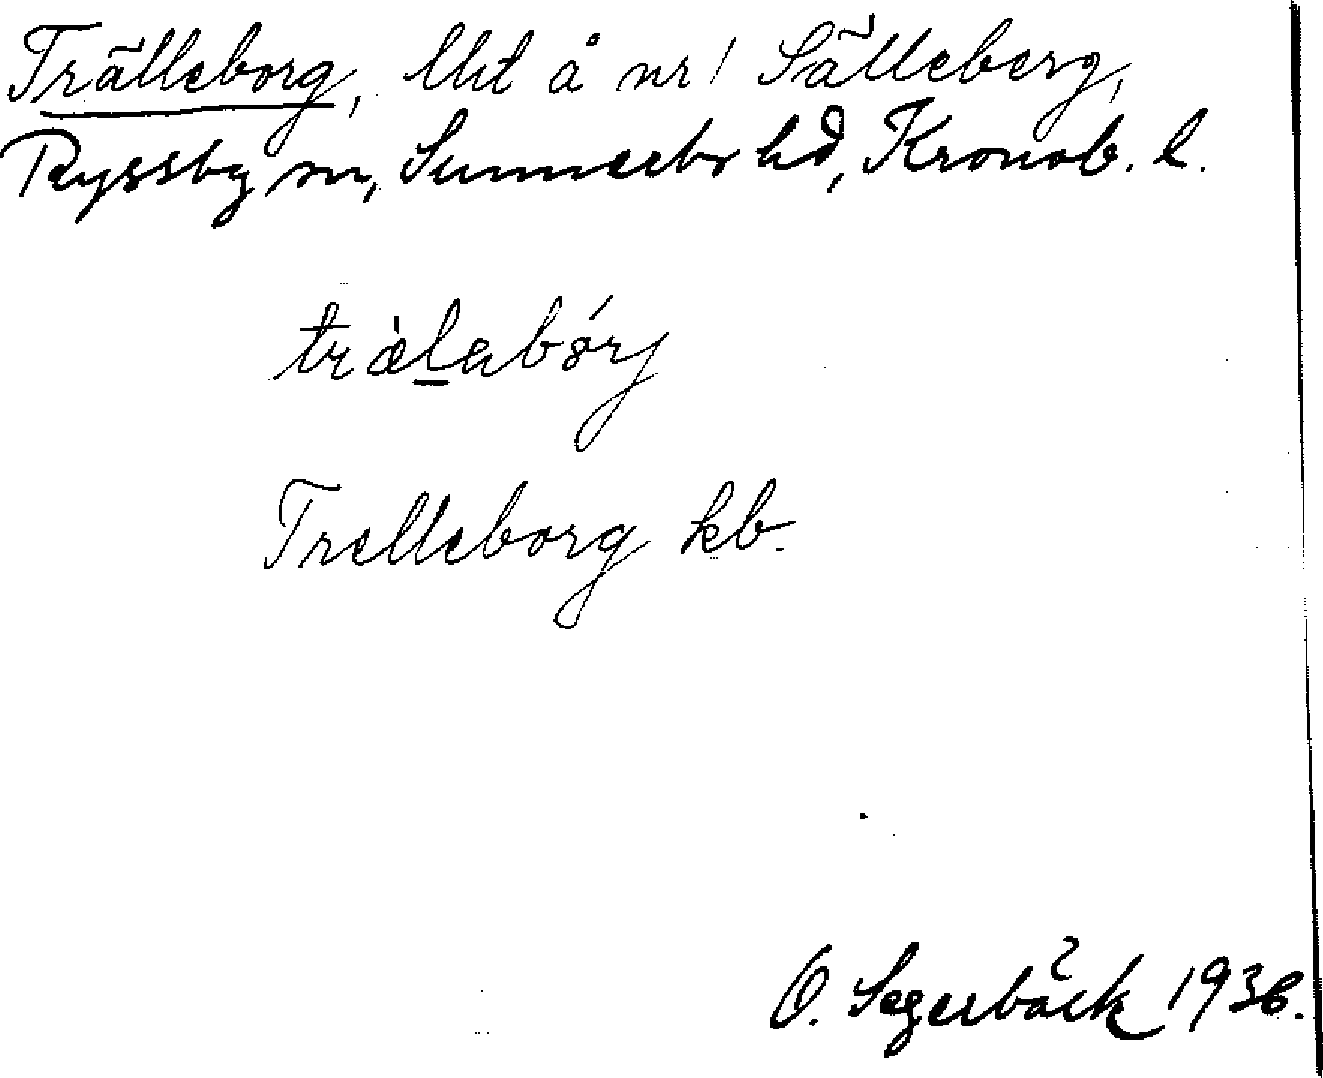 Trälleborg, lht å nr 1 Sälleberg,
Ryssby sn, Sunnerbo hd, Kronob. l.
træ̀l̲abórj
Trelleborg kb.
O. Segerbäck 1936.